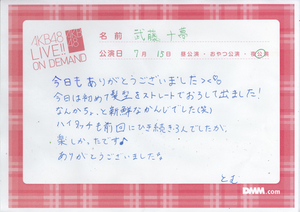 AKB48
LIVE!!
ON DEMAND
AKB48
名前 武藤 十夢
公演日 7月 15日 昼公演・おやつ公演・夜公演
今日もありがとうございました
今日は初めて髪型をストレートでおろして出ました!
なんかちょっと新鮮なかんじでした(笑)
ハイタッチも前回にひき続きるんでしたが、
楽しかったです♪
ありがとうございました。
とむ
DMM.com